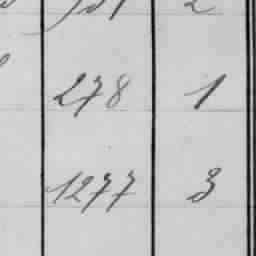 278 1
1277 3